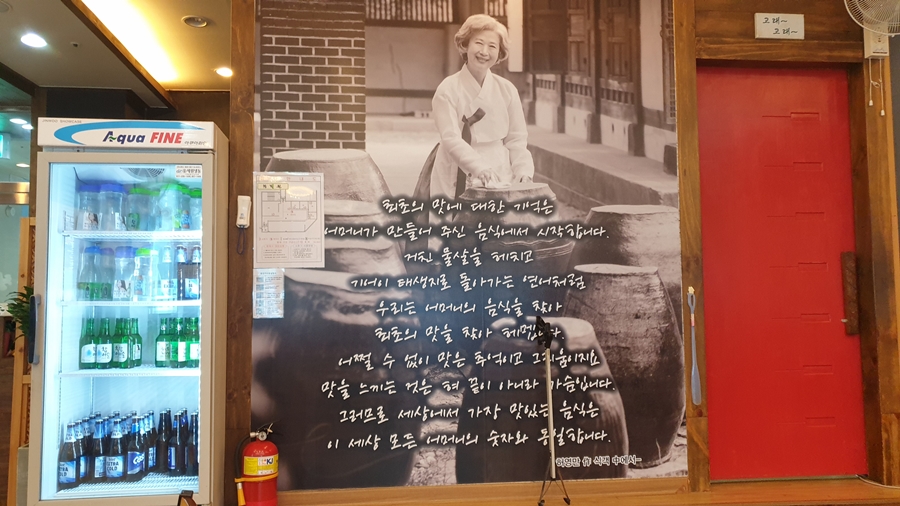 Aqua FINE
고래~
고래~
최초의 맛에 대한 기억은
어머니가 만들어 주신 음식에서 시작합니다.
거친 물살을 헤치고
기어이 태생지로 돌아가는 연어처럼
우리는 어머니의 음식을 찾아
최초의 맛을 찾아 헤맵니다.
어쩔 수 없이 맛은 추억이고 그리움이지요
맛을 느끼는 것은 혀 끝이 아니라 가슴입니다.
그러므로 세상에서 가장 맛있는 음식은
이 세상 모든 어머니의 숫자와 동일합니다.
허영만 作 식객 中에서~